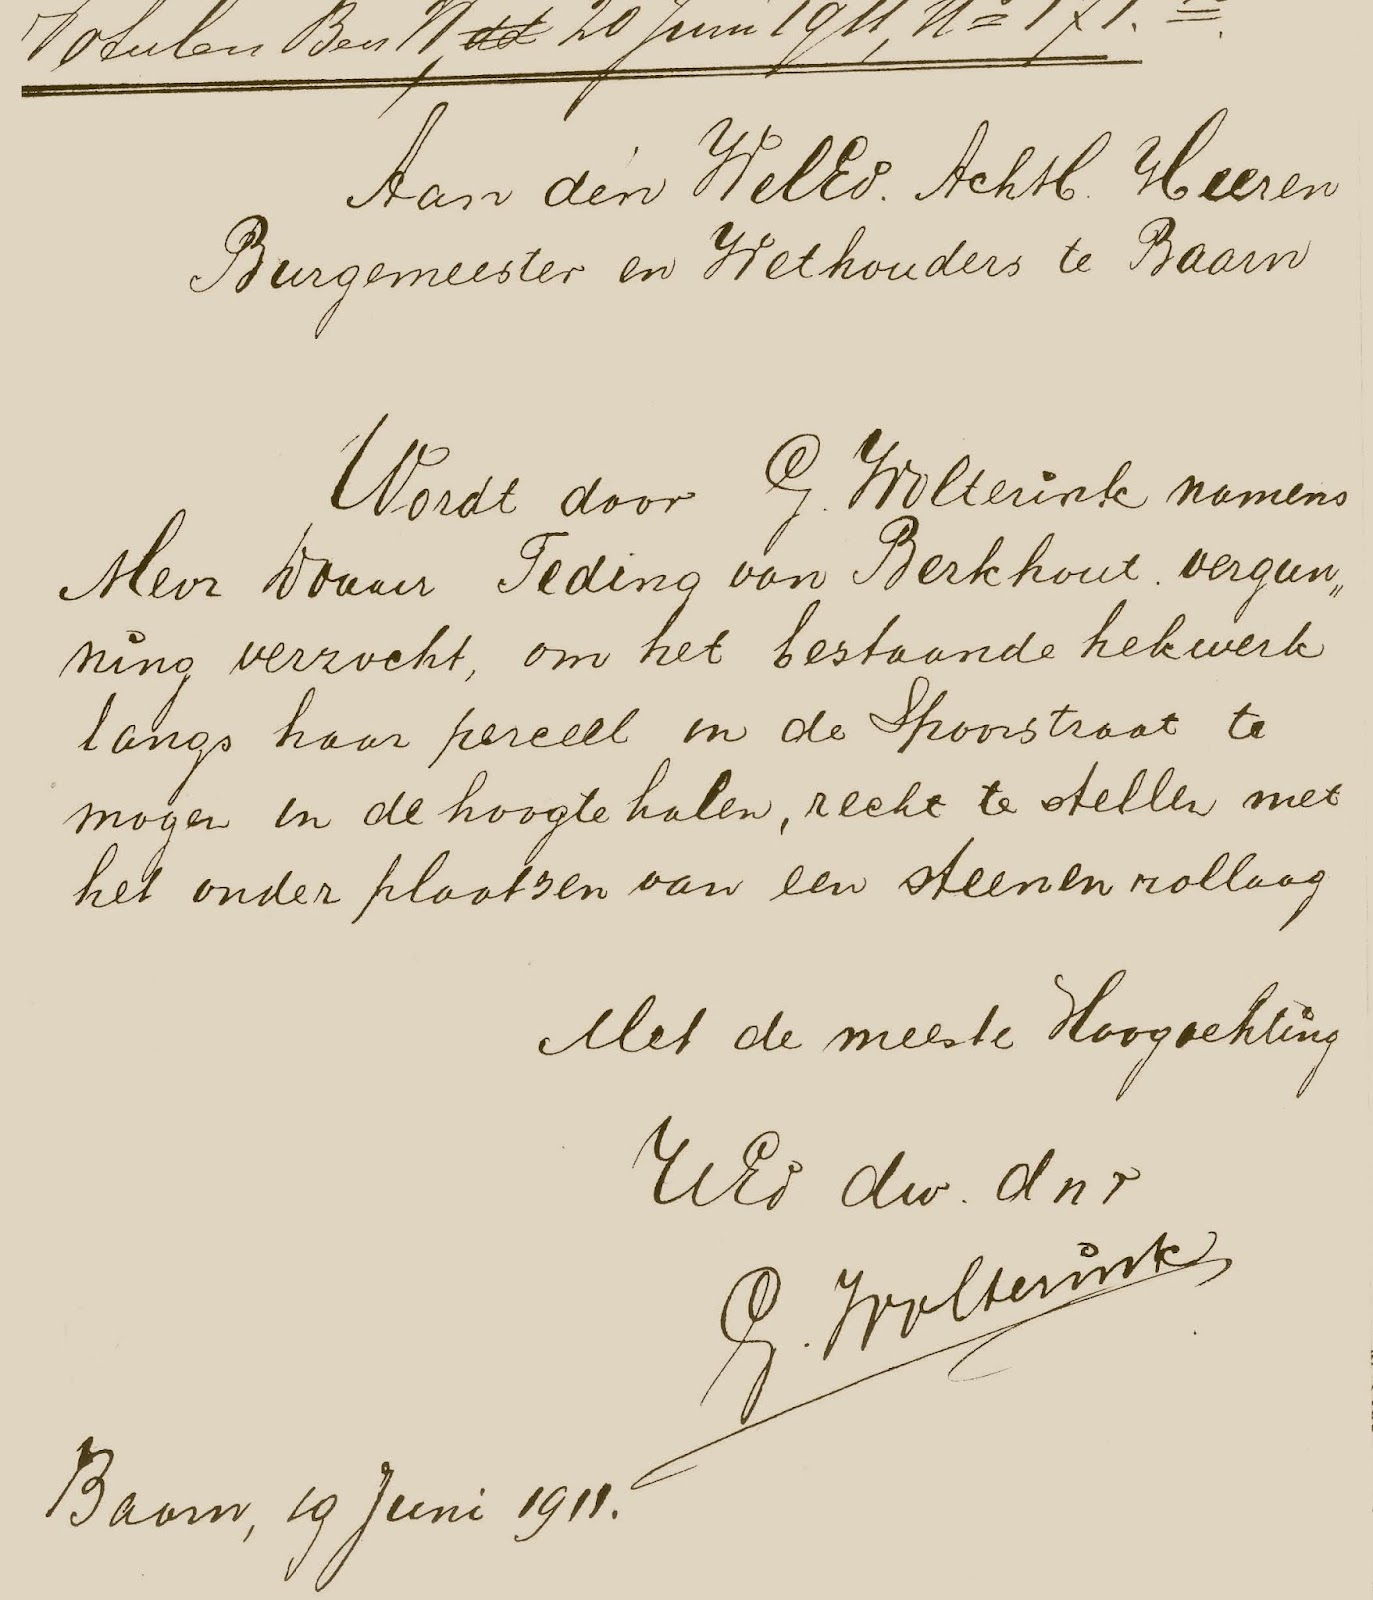 Notulen B en W dd 20 Juni 1911, No 171.
Aan den WelEd. Achtb. Heeren
Burgemeester en Wethouders te Baarn
Wordt door G. Wolterink namens
Mevr Douair Teding van Berkhout vergun„
ning verzocht, om het bestaande hekwerk
langs haar perceel in de Spoorstraat te
mogen in de hoogte halen, recht te stellen met
het onder plaatsen van een steenen rollaag
Met de meeste Hoogachting
UEd dw. dnr
G. Wolterink
Baarn, 19 Juni 1911.